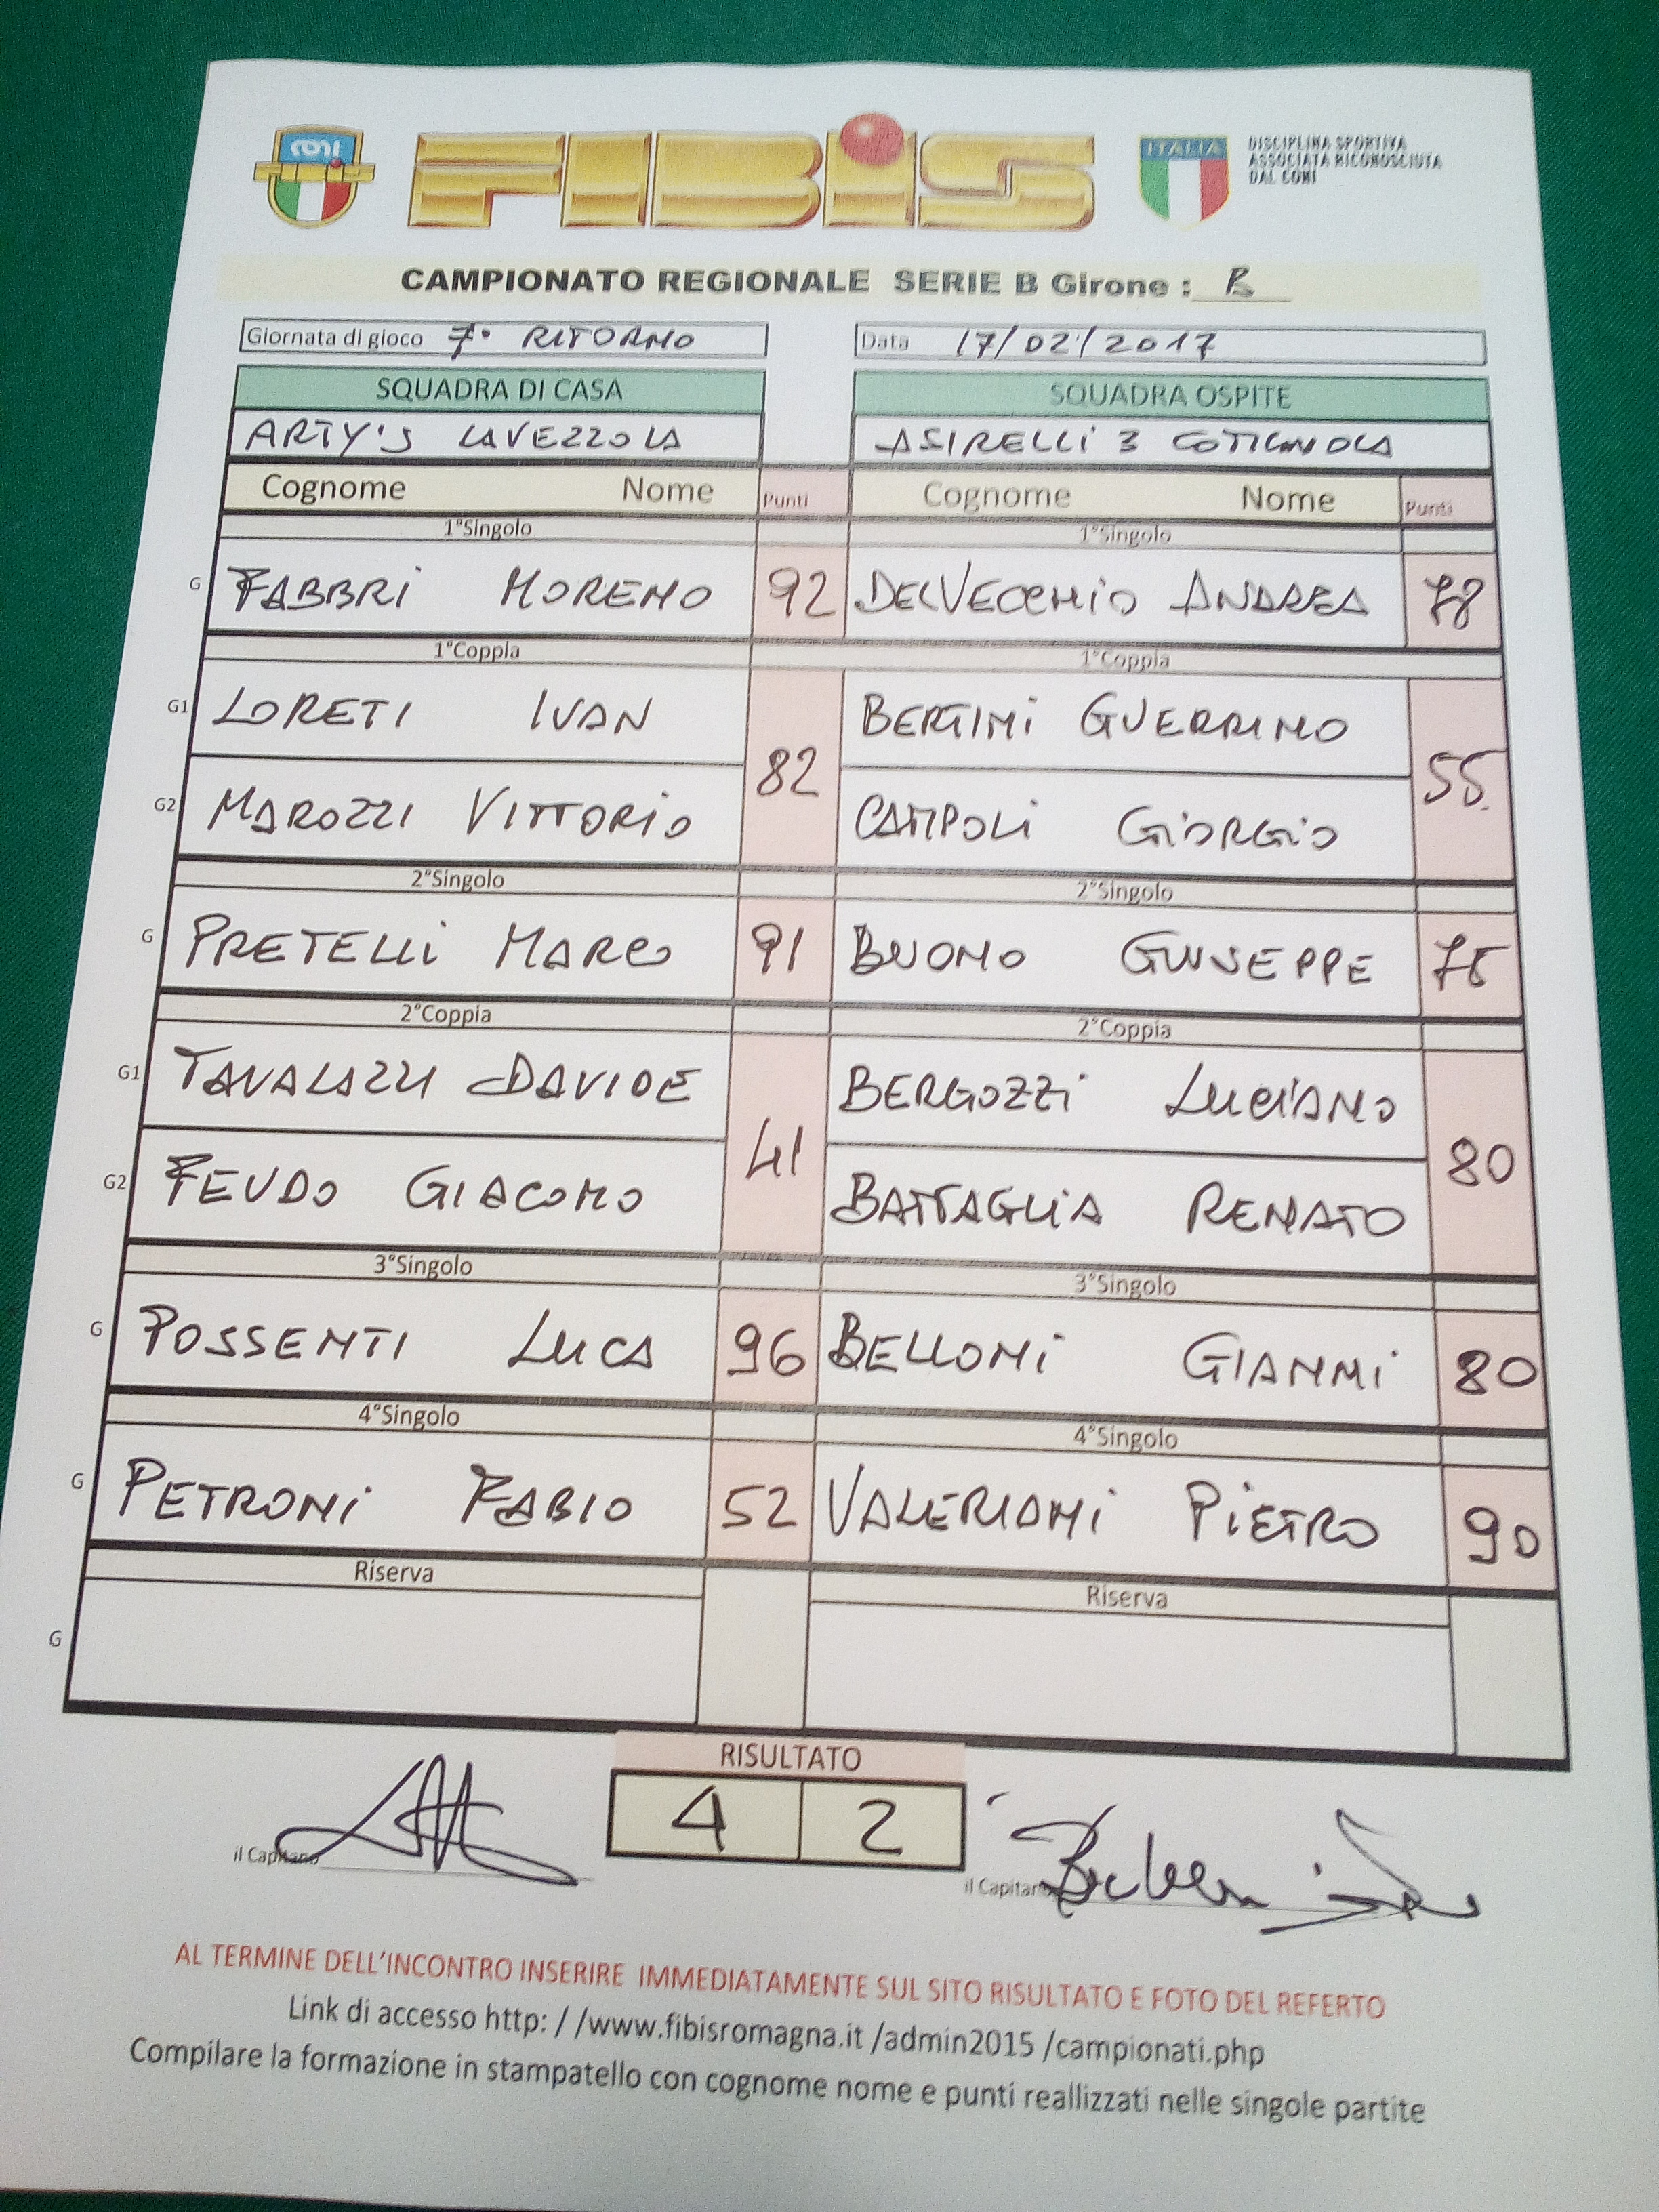 CONI
FIBIS
ITALIA
DISCIPLINA SPORTIVA
ASSOCIATA RICONOSCIUTA
DAL CONI
CAMPIONATO REGIONALE SERIE B Girone : B
Giornata di gioco 7° RITORNO Data 17/02/2017
SQUADRA DI CASA SQUADRA OSPITE
ARTY'S LAVEZZOLA ASIRELLI 3 COTIGNOLA
Cognome Nome Punti Cognome Nome Punti
1°Singolo 1°Singolo
G FABBRI MORENO 92 DELVECCHIO ANDREA 78
1°Coppia 1°Coppia
G1 LORETI IVAN BERTINI GUERRINO
82 55
G2 MAROZZI VITTORIO CAMPOLI GIORGIO
2°Singolo 2°Singolo
G PRETELLI MARCO 91 BUONO GIUSEPPE 75
2°Coppia 2°Coppia
G1 TAVALAZZI DAVIDE BERGOZZI LUCIANO
41 80
G2 FEUDO GIACOMO BATTAGLIA RENATO
3°Singolo 3°Singolo
G POSSENTI LUCA 96 BELLONI GIANNI 80
4°Singolo 4°Singolo
G PETRONI FABIO 52 VALERIANI PIETRO 90
Riserva Riserva
G
RISULTATO
4 2
il Capitano il Capitano
AL TERMINE DELL'INCONTRO INSERIRE IMMEDIATAMENTE SUL SITO RISULTATO E FOTO DEL REFERTO
Link di accesso http: / /www.fibisromagna.it /admin2015 /campionati.php
Compilare la formazione in stampatello con cognome nome e punti reallizzati nelle singole partite